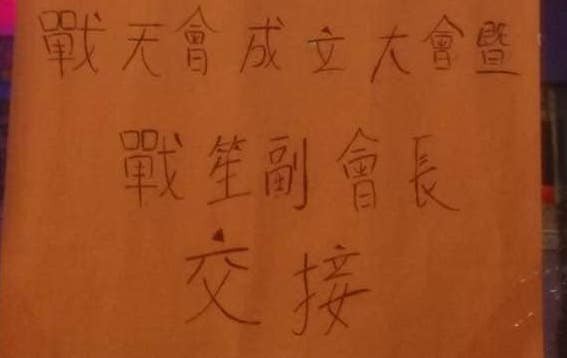 戰天會成立大會暨
戰笙副會長
交接